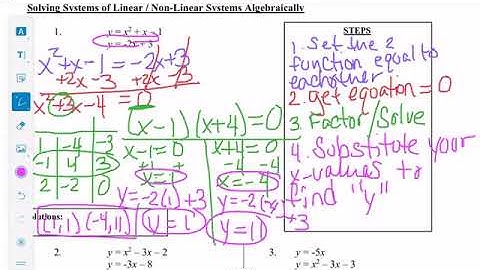 Solving Systems of Linear / Non-Linear Systems Algebraically
1. y = x² + x - 1
y = -2x + 3
x² + x - 1 = -2x + 3
+2x - 3 +2x - 3
x² + 3x - 4 = 0
1 -4 -3
-1 4 3
2 -2 0
(x-1)(x+4)=0
x-1=0 x+4=0
+1 +1 -4 -4
x=1 x=-4
y=-2(1)+3 y=-2(-4)+3
(1,1) (-4,11) y=1 y=11
STEPS
1. Set the 2
function equal to
eachother
2. get equation = 0
3 Factor/Solve
4. Substitute your
x-values to
find "y"
2. y = x² – 3x – 2
y = -3x – 8
3. y = -5x
y = x² – 3x – 3